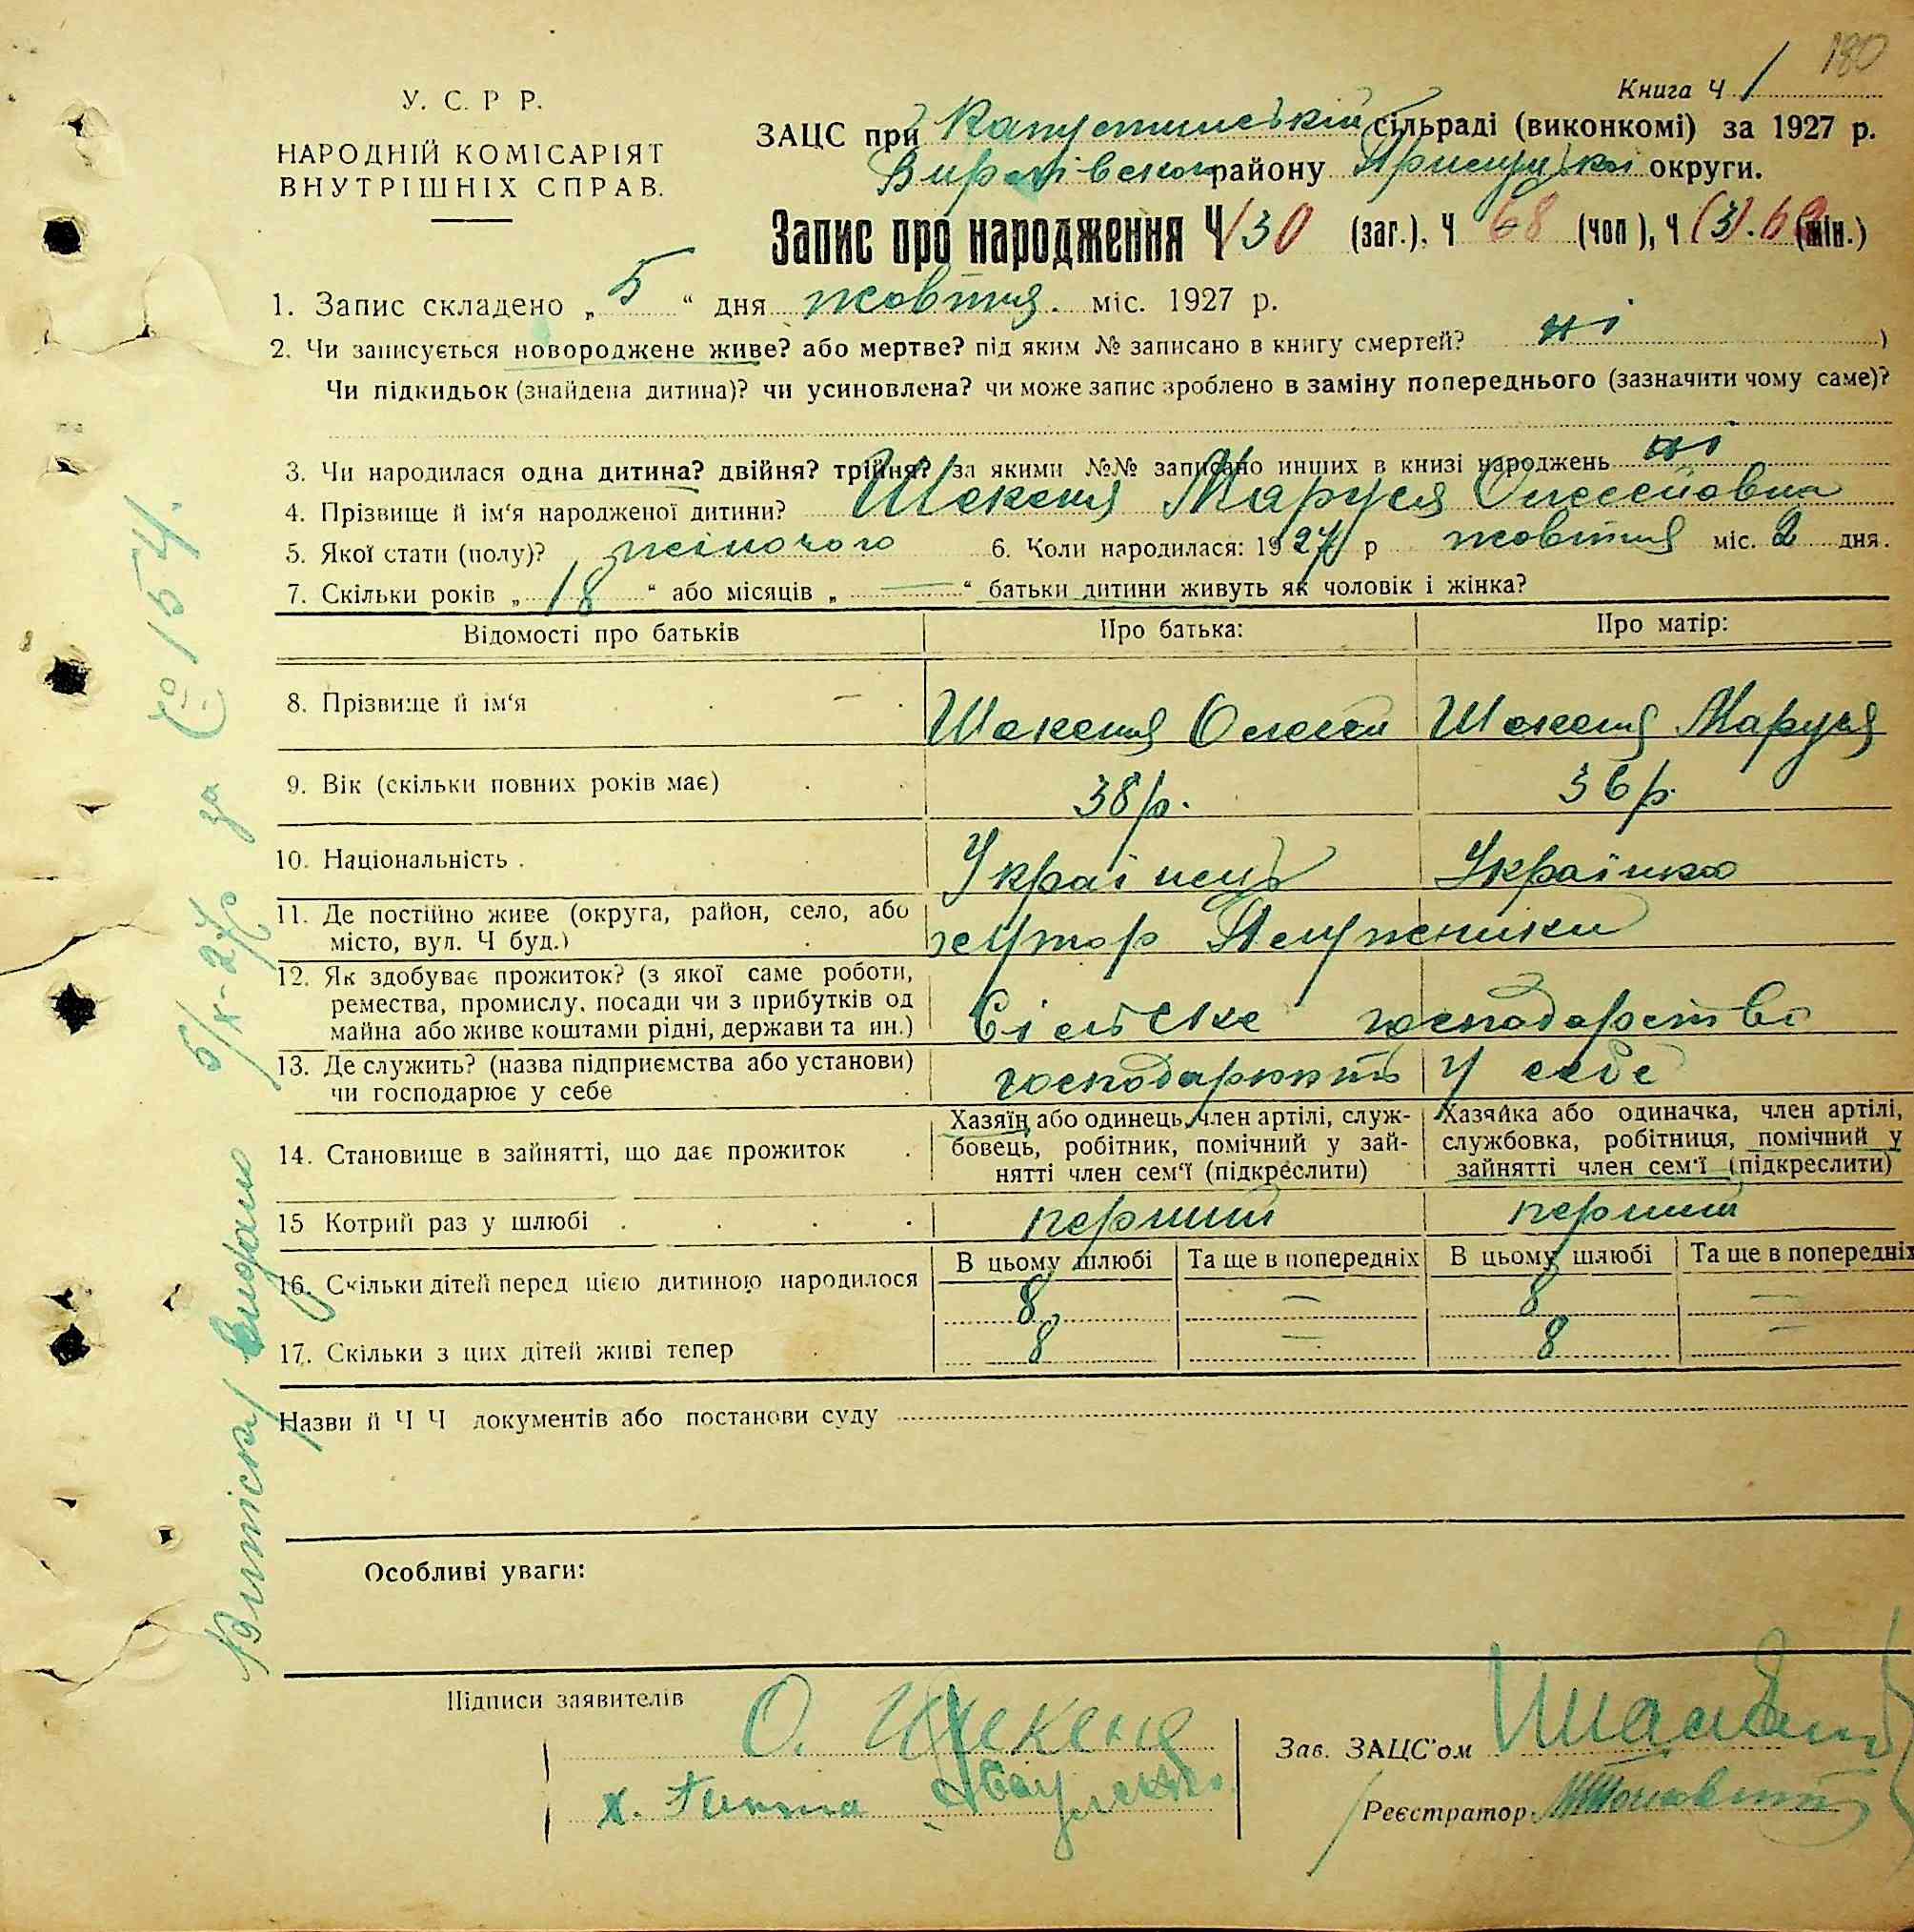 180
Книга Ч 1
У. С. Р Р.
НАРОДНІЙ КОМІСАРІЯТ
ВНУТРІШНІХ СПРАВ.
ЗАЦС при Капустинській сільраді (виконкомі) за 1927 р.
району Прилуцької округи.
Запис про народження Ч 130 (заг.), Ч 68 (чол), Ч (жін.)
1. Запис складено „ 5 “ дня жовтня. міс. 1927 р.
2. Чи записується новороджене живе? або мертве? під яким № записано в книгу смертей? ні )
Чи підкидьок (знайдена дитина)? чи усиновлена? чи може запис зроблено в заміну попереднього (зазначити чому саме)?
3. Чи народилася одна дитина? двійня? трійня? за якими №№ записано инших в книзі народжень ні
4. Прізвище й ім‘я народженої дитини? Шекеня Маруся Олексійовна
5. Якої стати (полу)? жіночого 6. Коли народилася: 1927 р жовтня міс. 2 дня.
7. Скільки років „ 18 “ або місяців „ — “ батьки дитини живуть як чоловік і жінка?
Відомості про батьків Про батька: Про матір:
8. Прізвище й ім‘я Шекеня Олексій Шекеня Маруся
9. Вік (скільки повних років має) 38 р. 36 р.
10. Національність . Українець Українка
11. Де постійно живе (округа, район, село, або
місто, вул. Ч буд.) хутор
12. Як здобуває прожиток? (з якої саме роботи,
ремества, промислу, посади чи з прибутків од
майна або живе коштами рідні, держави та ин.) Сільське господарство
13. Де служить? (назва підприємства або установи)
чи господарює у себе господарюють у себе
14. Становище в зайнятті, що дає прожиток
Хазяїн або одинець, член артілі, служ-
бовець, робітник, помічний у зай-
нятті член сем‘ї (підкреслити)
Хазяйка або одиначка, член артілі,
службовка, робітниця, помічний у
зайнятті член сем‘ї (підкреслити)
15 Котрий раз у шлюбі перший перший
В цьому шлюбі Та ще в попередніх В цьому шлюбі Та ще в попередніх
16. Скільки дітей перед цією дитиною народилося 8 — 8 —
17. Скільки з цих дітей живі тепер 8 — 8 —
Назви й Ч Ч документів або постанови суду
Особливі уваги:
Підписи заявителів
О. Шекеня
Зав. ЗАЦС'ом
Реєстратор
Виписку видано 5/X-27р за № 154.